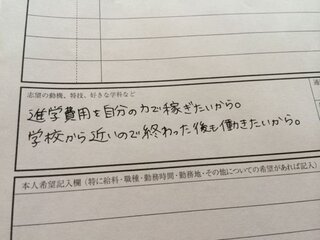 志望の動機、特技、好きな学科など
通
進学費用を自分の力で稼ぎたいから。
学校から近いので終わった後も働きたいから。
本人希望記入欄（特に給料・職種・勤務時間・勤務地・その他についての希望があれば記入）